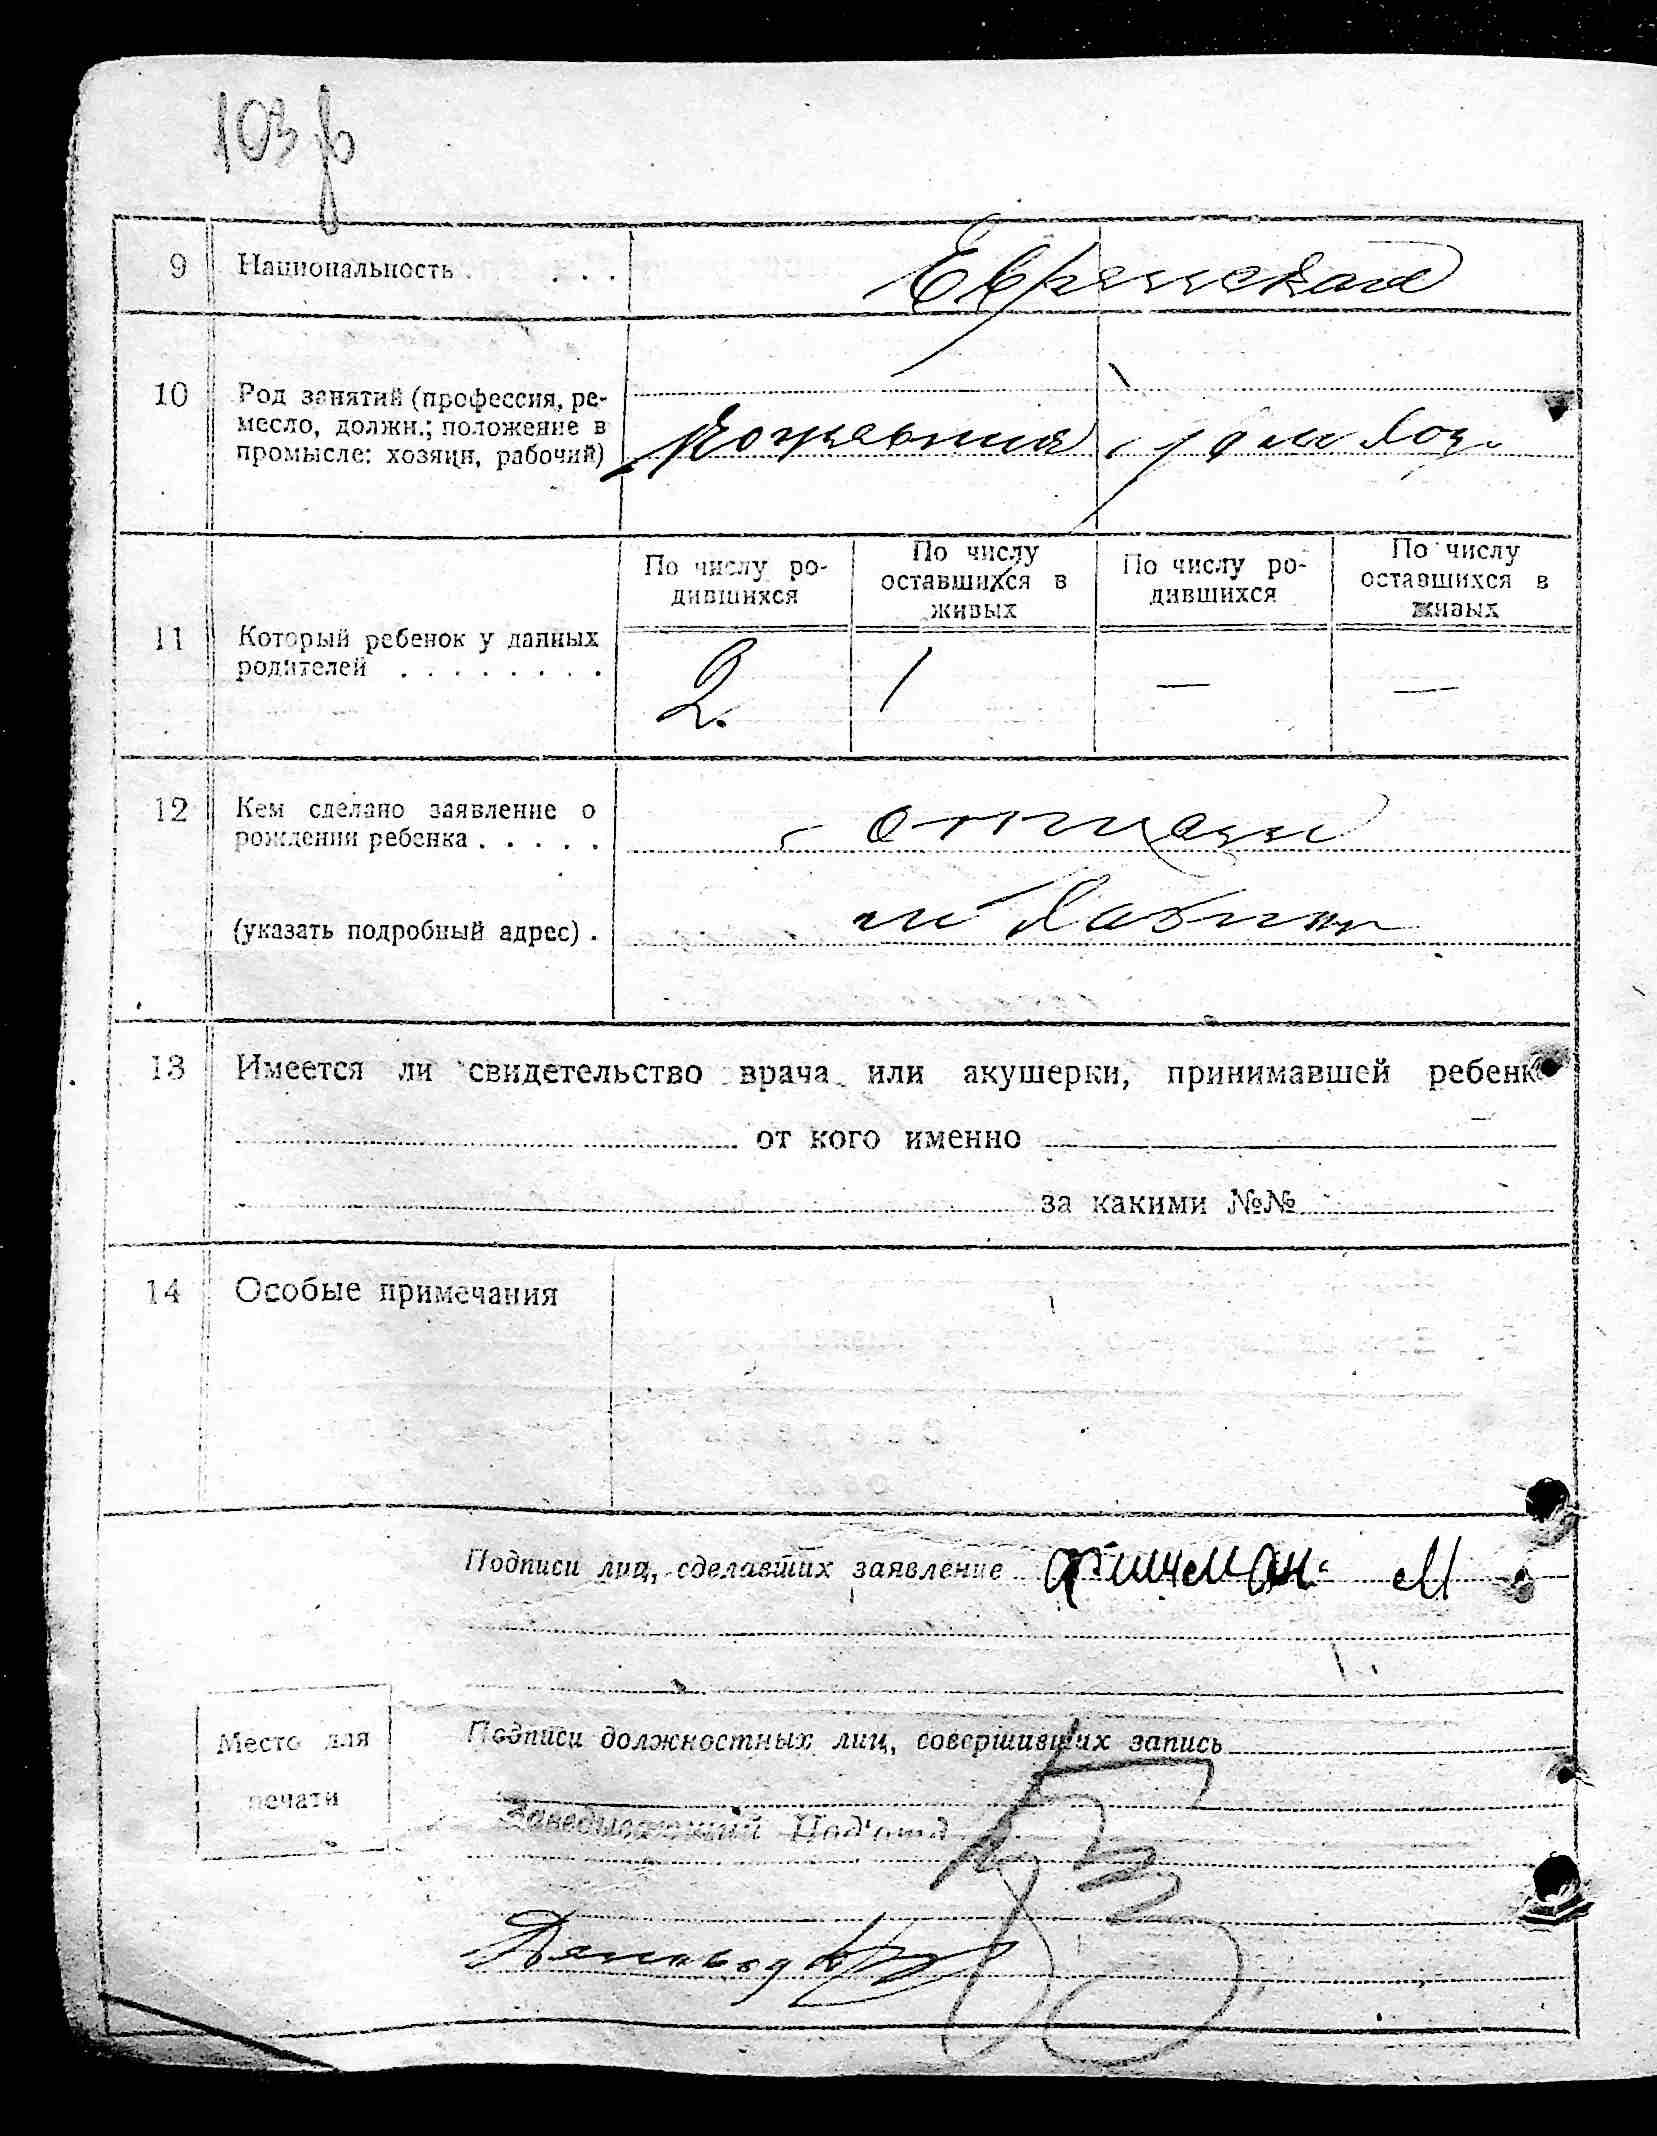 103
9 Национальность . . . . Еврейская
10 Род занятий (профессия, ре-
месло, должн.; положение в
промысле: хозяин, рабочий)
Кожевник дом хоз.
По числу ро-
дившихся
По числу
оставшихся в
живых
По числу ро-
дившихся
По числу
оставшихся в
живых
11 Который ребенок у данных
родителей . . . . . . . .
2. 1 — —
12 Кем сделано заявление о
рождении ребенка . . . . .
отцом
(указать подробный адрес) .
м Хабно
13 Имеется ли свидетельство врача или акушерки, принимавшей ребенк
от кого именно
за какими №№
14 Особые примечания
Подписи лиц, сделавших заявление Фишман М
Место для
печати
Подписи должностных лиц, совершивших запись
Заведывающий Под'отд
Деловод